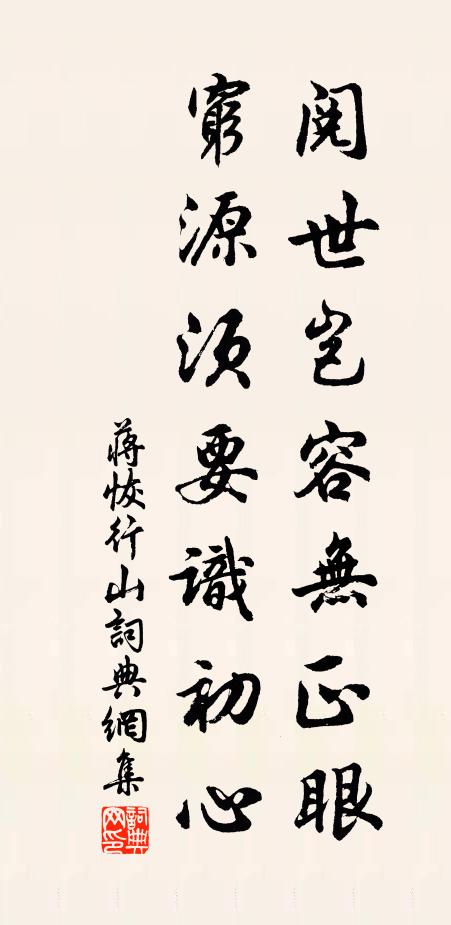 閱世豈容無正眼
窮源須要識初心
蔣恢行山詞典網集
詞典網印